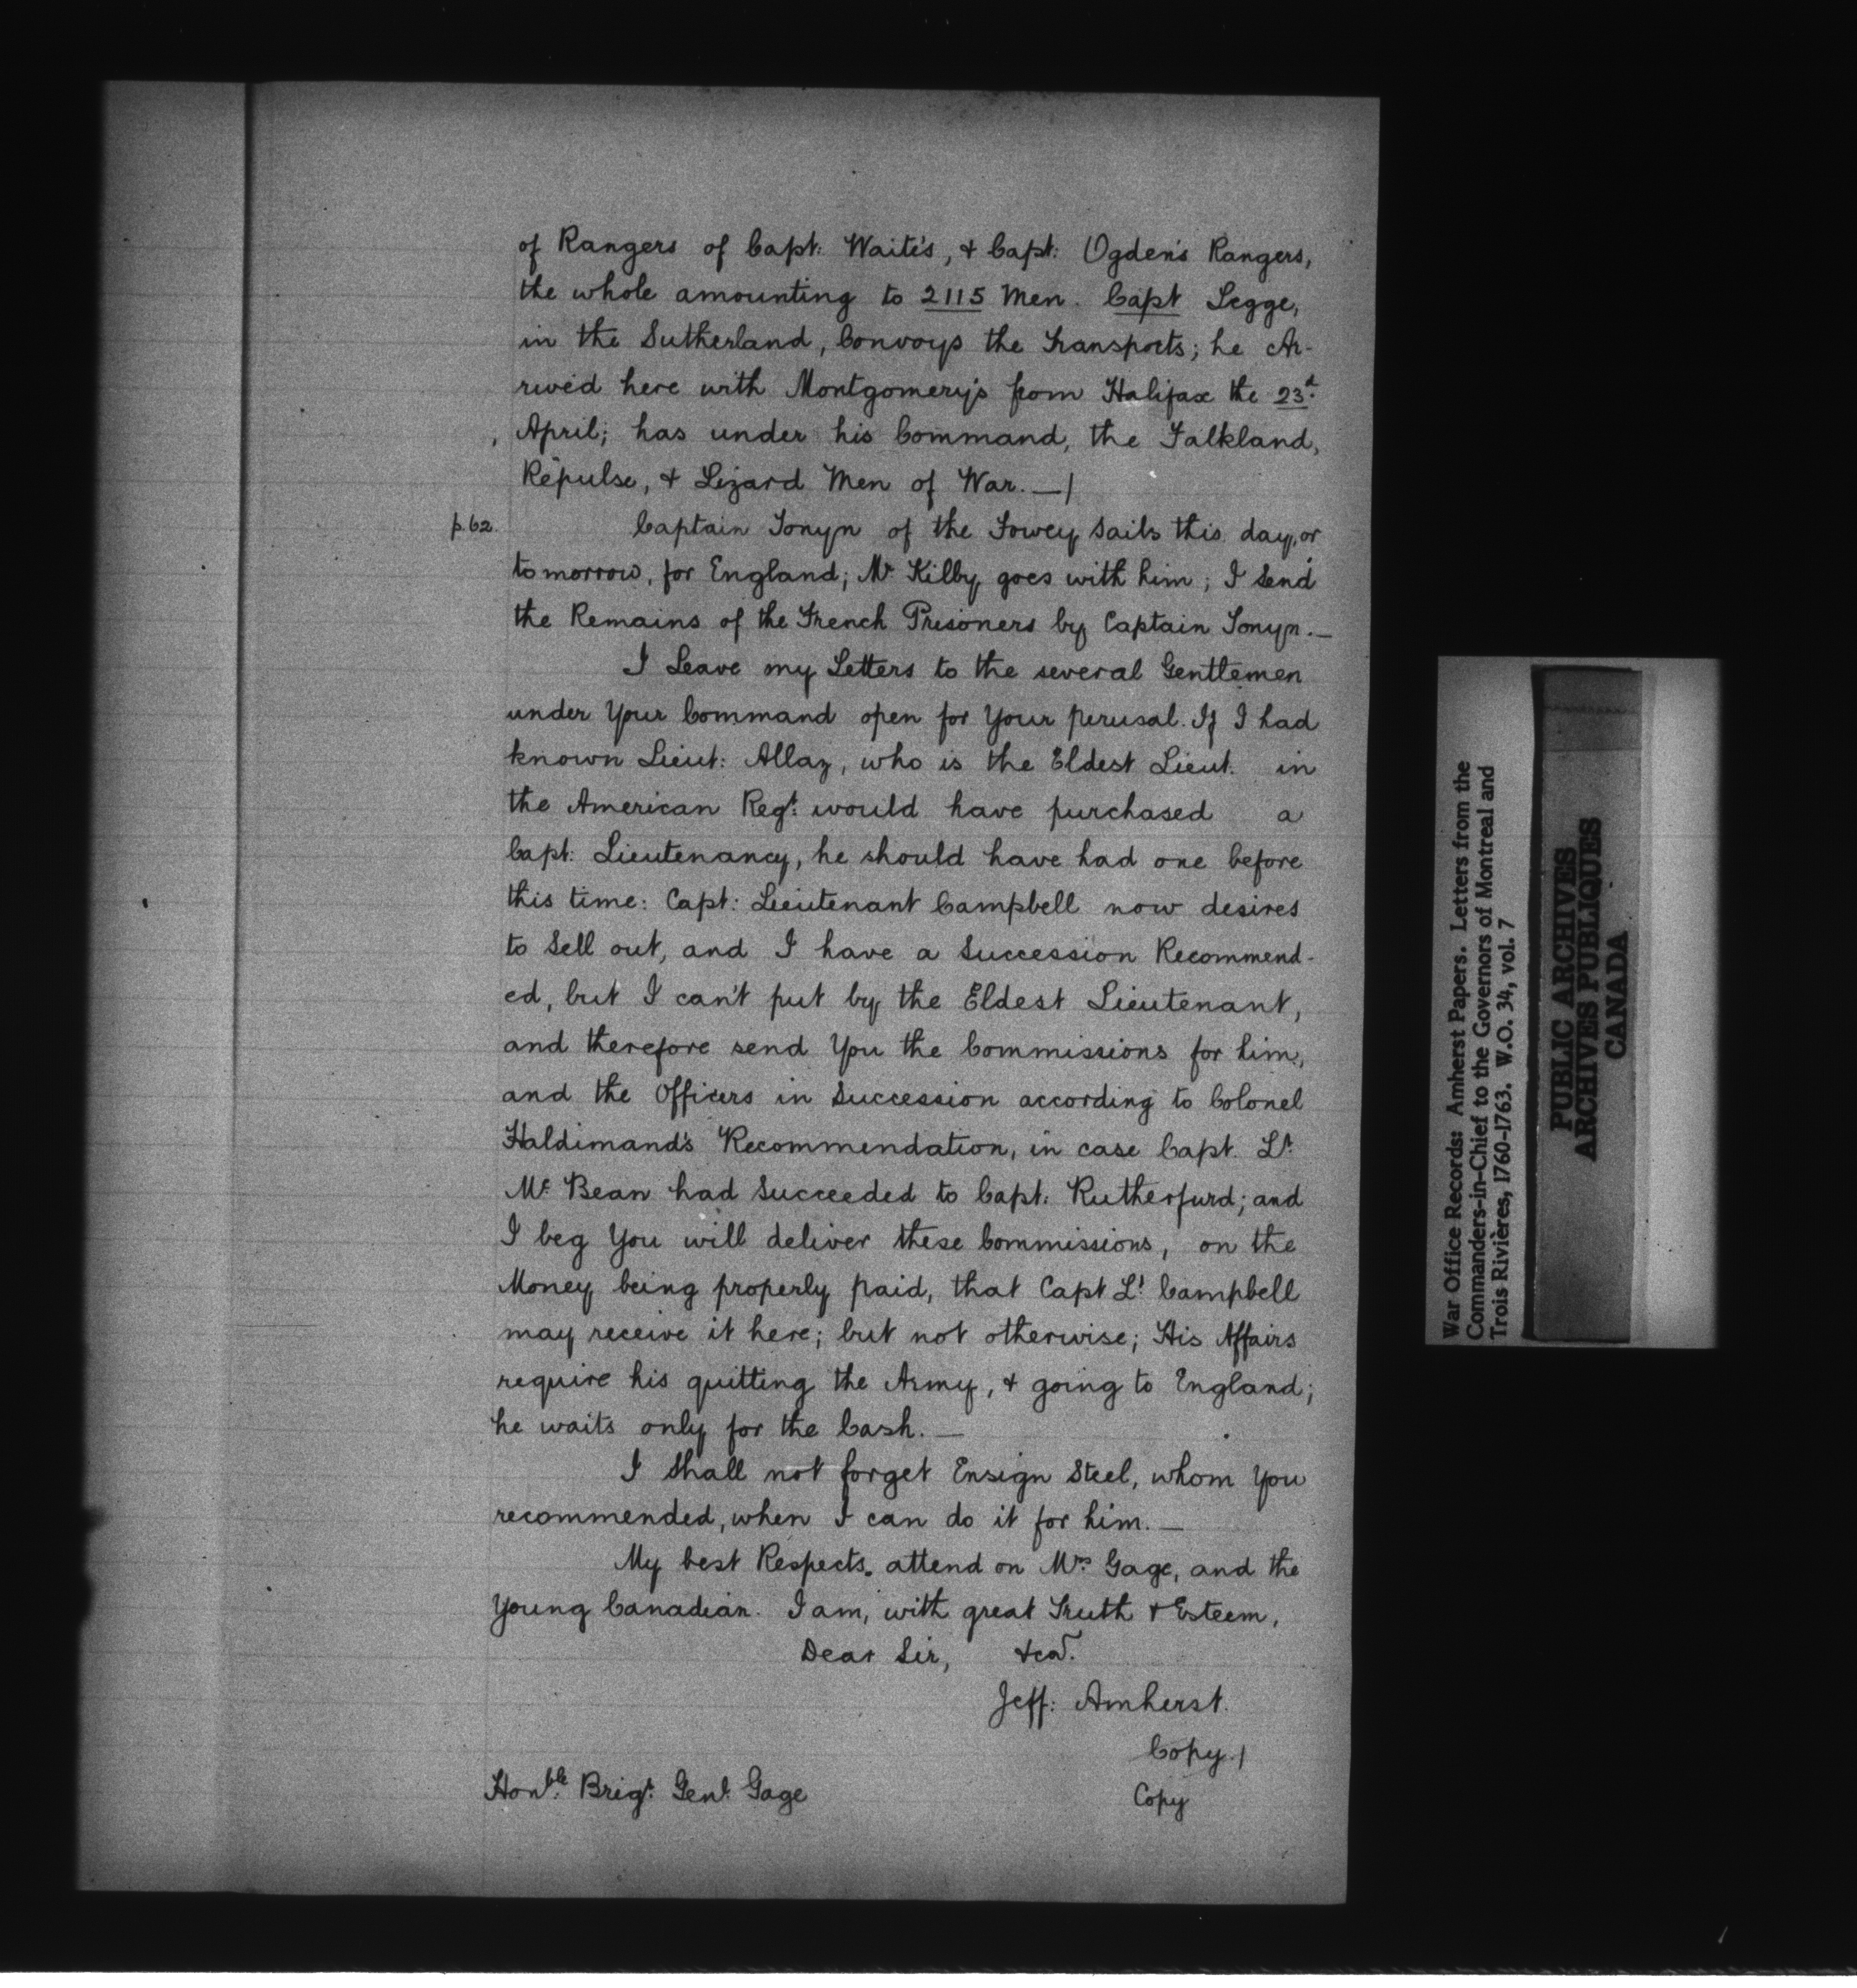 of Rangers of Capt: Waite's, & Capt: Ogden's Rangers,
the whole amounting to 2115 Men. Capt Legge,
in the Sutherland, Convoys the Transports; he Ar-
rived here with Montgomery's from Halifax the 23d.
April; has under his Command, the Falkland,
Repulse, & Lizard Men of War. —/
p.62.
Captain Tonyn of the Fowey Sails this day, or
tomorrow, for England; Mr. Kilby goes with him; I Send
the Remains of the French Prisoners by Captain Tonyn.—
I Leave my Letters to the several Gentlemen
under Your Command open for Your perusal. If I had
known Lieut: Allaz, who is the Eldest Lieut. in
the American Regt: would have purchased a
Capt: Lieutenancy, he should have had one before
this time: Capt: Lieutenant Campbell now desires
to Sell out, and I have a Succession Recommend-
ed, but I can't put by the Eldest Lieutenant,
and therefore send You the Commissions for him,
and the Officers in Succession according to Colonel
Haldimand's Recommendation, in case Capt. Lt.
Mc Bean had Succeeded to Capt. Rutherfurd; and
I beg You will deliver these Commissions, on the
Money being properly paid, that Capt Lt Campbell
may receive it here; but not otherwise; His Affairs
require his quitting the Army, & going to England;
he waits only for the Cash. —
I Shall not forget Ensign Steel, whom You
recommended, when I can do it for him. —
My best Respects. attend on Mrs. Gage, and the
Young Canadian. I am, with great Truth & Esteem,
Dear Sir, &ca.
Jeff: Amherst.
Copy./
Honble. Brigr. Genl. Gage
Copy
War Office Records: Amherst Papers. Letters from the
Commanders-in-Chief to the Governors of Montreal and
Trois Rivières, 1760-1763. W.O. 34, vol. 7
PUBLIC ARCHIVES
ARCHIVES PUBLIQUES
CANADA